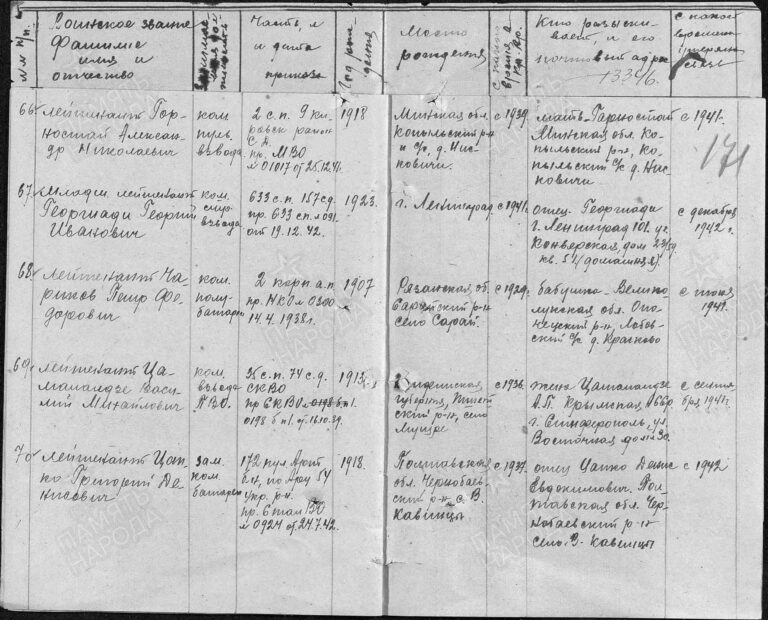 №№ п/п.
Воинское звание
Фамилия
имя и
отчество
Часть, №
и дата
приказа
Год рож-
дения
Место
рождения
с какого
времени в
Кр. Ар.
Кто разыски-
вает и его
почтовый адрес
13346.
с какого
времени
утеряна
связь
171
66. Лейтенант Гор-
ностай Алексан-
др Николаевич
ком
пул.
взвода
2 с.п. 9 ки-
район
пр. МВО
№ 01017 от 25.12.41.
1918
Минская обл.
Копыльский р-н
и с/с, д. Нис-
повичи.
с 1939.
мать-Гарностай
Минская обл. Ко-
пыльский р-н, Ко-
пыльский с/с д. Нис-
повичи
с 1941.
67. младш. лейтенант
Георгиади Георгий
Иванович
ком.
взвода
633 с.п. 157 сд.
пр. 633 сп. № 091.
от 19.12.42.
1923.
г. Ленинград
с 1941.
отец-Георгиади
г. Ленинград 101. ул.
Конверская, дом 23/59
кв. 54 (домашняя).
с декабря
1942 г.
68. Лейтенант Ча-
риков Петр Фе-
дорович
ком.
полу-
батареи
2 корп а.п.
пр. НКО № 0300
14.4.1938 г.
1907
Рязанская об.
Сараевский р-н
село Сараи.
с 1929.
бабушка-Велико-
лукская обл. Опо-
чецкий р-н,
с/с д. Краснова
с июня
1941.
69. Лейтенант Ца-
маландзе Васи-
лий Михайлович
ком.
взвода
ПВО.
35 с.п. 74 с.д.
СКВО
пр СКВО № 0198 б п 1.
0198 б п 1. от 16.10.39.
1913.
губерния,
р-н, село
с 1936.
жена Цамаландзе
А.П. Крымская АССР.
г. Симферополь, ул.
Восточная дом № 30.
с сентя-
бря 1941 г.
70. Лейтенант Цап-
ко Григорий Де-
нисович
зам.
ком
батареи
172 пул. Арт
б-н, по Ару 54
укр. р-н.
пр. 6
№ 0924 от 24.7.42.
1918.
Полтавская
обл. Чернобаев-
ский р-н с. В.
Кавинцы
с 1937.
отец Цапко Денис
Евдокимович. Пол-
тавская обл. Чер-
нобаевский р-н
село В-Кавинцы
с 1942
ПАМЯТЬ
НАРОДА